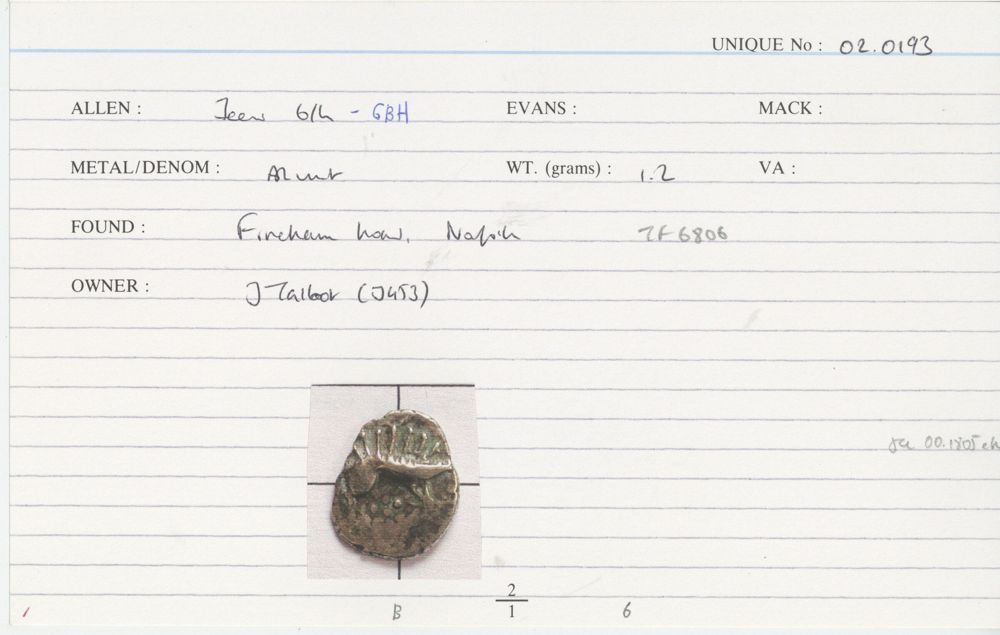 UNIQUE No : 02.0193
ALLEN : Icen 6/h - GBH EVANS : MACK :
METAL/DENOM : AR unit WT. (grams) : 1.2 VA :
FOUND : Fincham how, Norfolk TF6806
OWNER : J Talbot (J453)
00.1805
B 2/1 6